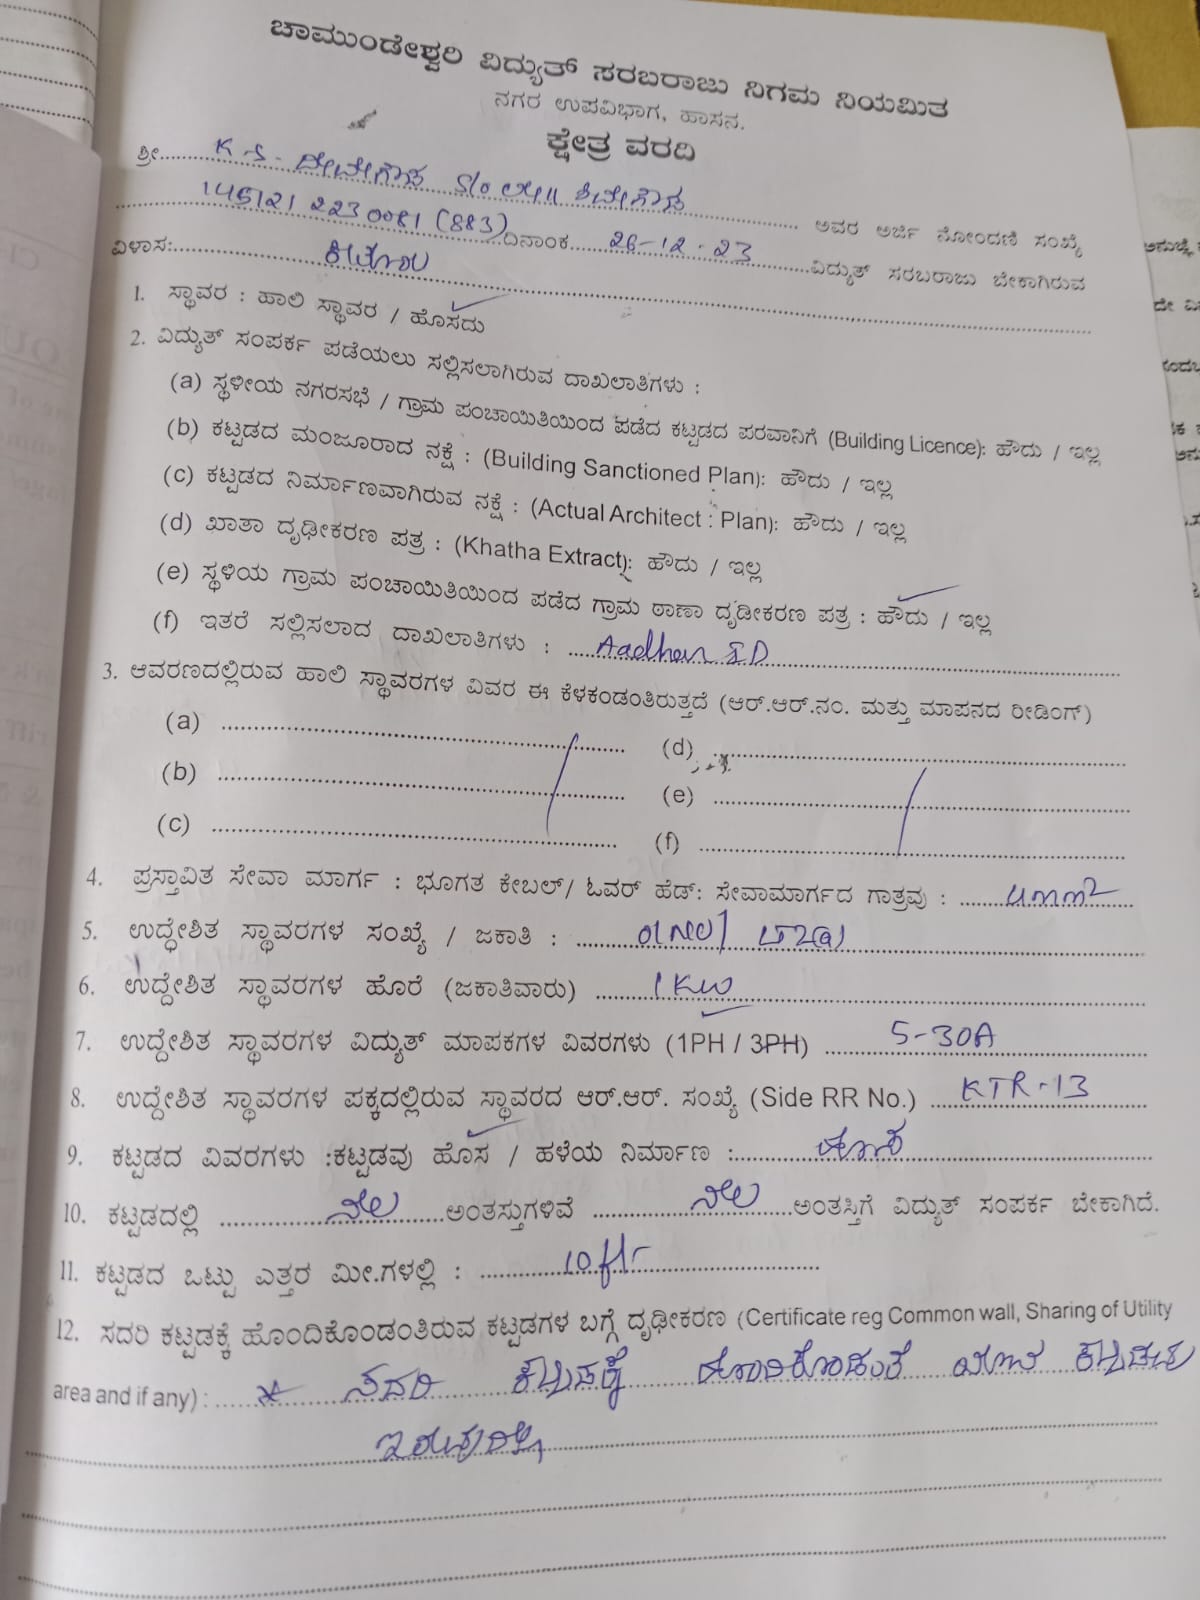 ಚಾಮುಂಡೇಶ್ವರಿ ವಿದ್ಯುತ್ ಸರಬರಾಜು ನಿಗಮ ನಿಯಮಿತ
ನಗರ ಉಪವಿಭಾಗ, ಹಾಸನ.
ಕ್ಷೇತ್ರ ವರದಿ
ಶ್ರೀ K S ದೇವೇಗೌಡ S/o ಲೇ|| ಶಿವೇಗೌಡ
(883) ಅವರ ಅರ್ಜಿ ನೋಂದಣಿ ಸಂಖ್ಯೆ
ದಿನಾಂಕ 26-12-23 ವಿದ್ಯುತ್ ಸರಬರಾಜು ಬೇಕಾಗಿರುವ
ವಿಳಾಸ:
1. ಸ್ಥಾವರ : ಹಾಲಿ ಸ್ಥಾವರ / ಹೊಸದು
2. ವಿದ್ಯುತ್ ಸಂಪರ್ಕ ಪಡೆಯಲು ಸಲ್ಲಿಸಲಾಗಿರುವ ದಾಖಲಾತಿಗಳು :
(a) ಸ್ಥಳೀಯ ನಗರಸಭೆ / ಗ್ರಾಮ ಪಂಚಾಯಿತಿಯಿಂದ ಪಡೆದ ಕಟ್ಟಡದ ಪರವಾನಿಗೆ (Building Licence): ಹೌದು / ಇಲ್ಲ
(b) ಕಟ್ಟಡದ ಮಂಜೂರಾದ ನಕ್ಷೆ : (Building Sanctioned Plan): ಹೌದು / ಇಲ್ಲ
(c) ಕಟ್ಟಡದ ನಿರ್ಮಾಣವಾಗಿರುವ ನಕ್ಷೆ : (Actual Architect : Plan): ಹೌದು / ಇಲ್ಲ
(d) ಖಾತಾ ದೃಢೀಕರಣ ಪತ್ರ : (Khatha Extract): ಹೌದು / ಇಲ್ಲ
(e) ಸ್ಥಳಿಯ ಗ್ರಾಮ ಪಂಚಾಯಿತಿಯಿಂದ ಪಡೆದ ಗ್ರಾಮ ಠಾಣಾ ದೃಡೀಕರಣ ಪತ್ರ : ಹೌದು / ಇಲ್ಲ
(f) ಇತರೆ ಸಲ್ಲಿಸಲಾದ ದಾಖಲಾತಿಗಳು : Aadhar ID
3. ಆವರಣದಲ್ಲಿರುವ ಹಾಲಿ ಸ್ಥಾವರಗಳ ವಿವರ ಈ ಕೆಳಕಂಡಂತಿರುತ್ತದೆ (ಆರ್.ಆರ್.ನಂ. ಮತ್ತು ಮಾಪನದ ರೀಡಿಂಗ್)
(a) (d)
(b) (e)
(c) (f)
4. ಪ್ರಸ್ತಾವಿತ ಸೇವಾ ಮಾರ್ಗ : ಭೂಗತ ಕೇಬಲ್/ ಓವರ್ ಹೆಡ್: ಸೇವಾಮಾರ್ಗದ ಗಾತ್ರವು : 4mm2
5. ಉದ್ಧೇಶಿತ ಸ್ಥಾವರಗಳ ಸಂಖ್ಯೆ / ಜಕಾತಿ :
6. ಉದ್ದೇಶಿತ ಸ್ಥಾವರಗಳ ಹೊರೆ (ಜಕಾತಿವಾರು) 1 KW
7. ಉದ್ದೇಶಿತ ಸ್ಥಾವರಗಳ ವಿದ್ಯುತ್ ಮಾಪಕಗಳ ವಿವರಗಳು (1PH / 3PH) 5-30A
8. ಉದ್ದೇಶಿತ ಸ್ಥಾವರಗಳ ಪಕ್ಕದಲ್ಲಿರುವ ಸ್ಥಾವರದ ಆರ್.ಆರ್. ಸಂಖ್ಯೆ (Side RR No.) KTR-13
9. ಕಟ್ಟಡದ ವಿವರಗಳು :ಕಟ್ಟಡವು ಹೊಸ / ಹಳೆಯ ನಿರ್ಮಾಣ : ಹೊಸ
10. ಕಟ್ಟಡದಲ್ಲಿ ನೆಲ ಅಂತಸ್ತುಗಳಿವೆ ನೆಲ ಅಂತಸ್ತಿಗೆ ವಿದ್ಯುತ್ ಸಂಪರ್ಕ ಬೇಕಾಗಿದೆ.
11. ಕಟ್ಟಡದ ಒಟ್ಟು ಎತ್ತರ ಮೀ.ಗಳಲ್ಲಿ : 10 ft
12. ಸದರಿ ಕಟ್ಟಡಕ್ಕೆ ಹೊಂದಿಕೊಂಡಂತಿರುವ ಕಟ್ಟಡಗಳ ಬಗ್ಗೆ ದೃಢೀಕರಣ (Certificate reg Common wall, Sharing of Utility
area and if any) : * ಸದರಿ ಕಟ್ಟಡಕ್ಕೆ ಹೊಂದಿಕೊಂಡಂತೆ ಯಾವ ಕಟ್ಟಡವು
ಇರುವುದಿಲ್ಲ